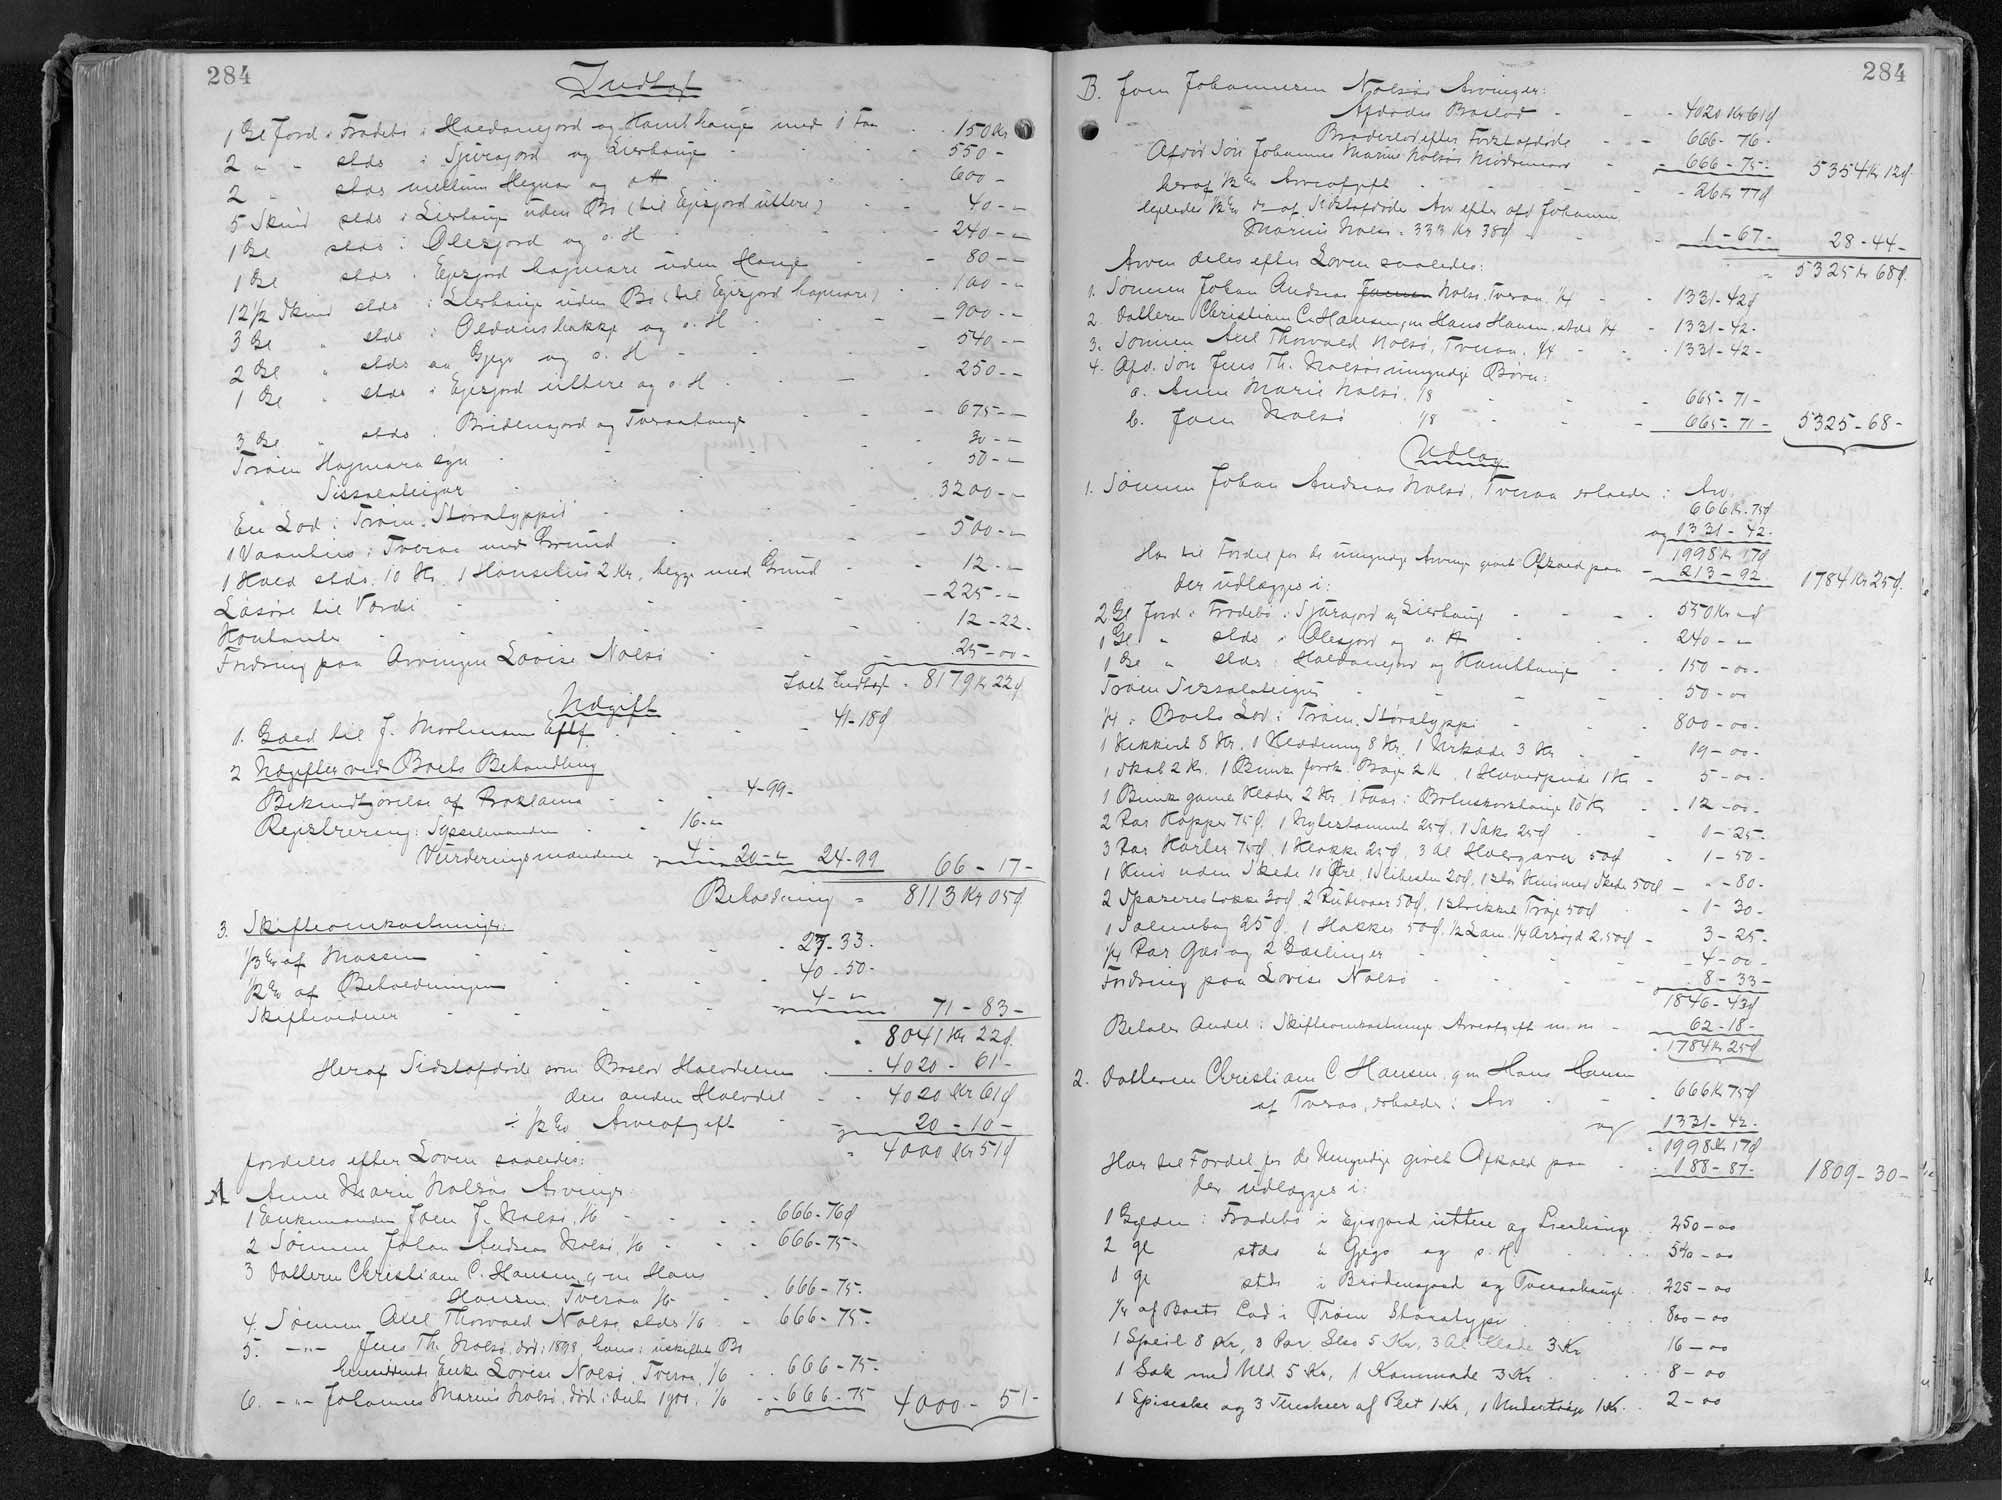 284
Indtægt
1 Gl Jord i Frodebø i Haldansjord og Hamithauge med 1 Faar - 150 Kr
2 " - stds i Sjúrajord og Lierhauge - 550 -
2 " stds mellum Hegnar og o H - 600 -
5 Skind stds i Lierhauge uden Bø (til Egisjord úttere) - 40 - "
1 Gl stds i Olesjord og o. H - 240 - "
1 Gl stds i Egisjord hagmare uden Hauge - 80 - "
12 1/2 Skind stds i Lierhauge uden Bø (til Egisjord hagmare) - 100 - "
3 Gl " stds i Oldanshakke og o. H - 900 - "
2 Gl " stds aa Gjegv og o. H - 540 - "
1 Gl " stds i Egisjord úttere og o. H - 250 - "
3 Gl " stds i Bridensgord og Tveraahauge - 675 - "
Trøen Hagmara egn - 30 - "
" Sissalateigur - 50 - "
En Lod i Trøin Støralyppis - 3200 - "
1 Vaanhus i Tveraa med Grund - 500 - "
1 Hald stds. 10 Kr. 1 Hønsehus 2 Kr, begge med Grund - 12 - "
Løsøre til Værdi - 225 - "
Kontanter - 12 - 22 -
Fordring paa Arvingen Lovise Nolsø - 25 - 00 -
Ialt Indtægt - 8179 Kr 22 ø
Udgift
1. Gæld til J. Mortensen Eftf. - 41 - 18 ø
2 Udgifter ved Boets Behandling
Bekendtgjørelse af Proklama - 4 - 99 -
Registrering: Sysselmanden - 16 - "
Vurderingsmændene 4 - " 20 - " 24 - 99 66 - 17 -
Beholdning = 8113 Kr 05 ø
3. Skifteomkostninger:
1/3 % af Massen - 27 - 33 -
1/2 % af Beholdningen - 40 - 50 -
Skiftevidner - 4 - " 71 - 83 -
8041 Kr 22 ø
Heraf Sidstafdøde som Boslod Halvdelen - 4020 - 61 -
den anden Halvdel - 4020 Kr 61 ø
÷ 1/2 % Arveafgift - 20 - 10 -
4000 Kr 51 ø
fordeles efter Loven saaledes:
A Anne Marie Nolsøs Arvinger:
1 Enkemanden Joen J. Nolsø, 1/6 - 666 - 76 ø
2 Sønnen Johan Andreas Nolsø, 1/6 - 666 - 75 -
3 Datteren Christiane C. Hansen, g m Hans
Hansen, Tveraa 1/6 - 666 - 75 -
4. Sønnen Axel Thorvald Nolsø, stds 1/6 - 666 - 75 -
5. - " - Jens Th. Nolsø, død i 1898, hans i uskiftet Bo
hensiddende Enke Lovise Nolsø, Tveraa, 1/6 - 666 - 75 -
6. - " - Johannes Marius Nolsø, død i 1900, 1/6 - 666 - 75 4000 - 51 -
284
B. Joen Johannesen Nolsøs Arvinger:
Afdødes Boslod - 4020 Kr 61 ø
Broderlod efter Førstafdøde - 666 - 76 -
Afdød Søn Johannes Marius Nolsøs Mødrenearv - 666 - 75 - 5354 Kr 12 ø
heraf 1/2 % Arveafgift - 26 Kr 77 ø
ligeledes 1/2 % do af Sidstafdødes Arv efter afd Johannes
Marius Nolsø - 333 Kr 38 ø - 1 - 67 - 28 - 44 -
5325 Kr 68 ø
Arven deles efter Loven saaledes:
1. Sønnen Johan Andreas Nolsø, Tveraa, 1/4 - 1331 - 42 ø
2. Datteren Christiane C. Hansen, g m Hans Hansen, stds 1/4 - 1331 - 42 -
3. Sønnen Axel Thorvald Nolsø, Tveraa, 1/4 - 1331 - 42 -
4. Afd. Søn Jens Th. Nolsøs umyndige Børn:
a. Anne Marie Nolsø, 1/8 - 665 - 71 -
b. Joen Nolsø 1/8 - 665 - 71 - 5325 - 68 -
Udlæg
1. Sønnen Johan Andreas Nolsø, Tveraa erholder: Arv
666 Kr. 75 ø
og 1331 - 42 -
1998 Kr 17 ø
Har til Fordel for de umyndige Arvinge givet Afkald paa - 213 - 92 1784 Kr 25 ø
der udlægges i:
2 Gl Jord i Frodebø i Sjúrajord og Lierhauge - 550 Kr " ø
1 Gl " stds i Olesjord og o. H - 240 - "
1 Gl " stds i Haldansjord og Hamithauge - 150 - 00 -
Trøen Sissalateigur - 50 - 00
1/4 i Boets Lod i Trøin Støralyppi - 800 - 00 -
1 Kikkert 8 Kr. 1 Klædning 8 Kr. 1 Urkæde 3 Kr - 19 - 00 -
1 Skab 2 Kr. 1 Bunke Brøje 2 Kr. 1 Hovedpude 1 Kr - 5 - 00 -
1 Bunke gamle Klæder 2 Kr. 1 Faar i 10 Kr - 12 - 00 -
2 Par Hopper 75 ø. 1 25 ø. 1 Saks 25 ø - 1 - 25 -
3 Par Karter 75 ø. 1 Hakke 25 ø. 3 al Hvergarn 50 ø - 1 - 50 -
1 Kniv uden Skede 10 Øre, 1 Slibesten 20 ø, 1 stor Kniv med Skede 50 ø - " - 80 -
2 Spaserestokke 30 ø. 2 Pudevaar 50 ø. 1 strikket Trøje 50 ø - 1 - 30 -
1 Salmebog 25 ø. 1 Hakker 50 ø. 1/2 Lam. 1/4 2.50 ø - 3 - 25 -
1/4 Par Gæs og 2 Gæslinger - 4 - 00 -
Fordring paa Lovise Nolsø - 8 - 33 -
1846 - 43 ø
Betaler Andel i Skifteomkostninger Arveafgift m. m - 62 - 18 -
1784 Kr 25 ø
2. Datteren Christiane C Hansen, g m Hans Hansen
af Tveraa, erholder: Arv - 666 Kr 75 ø
og 1331 - 42 -
1998 Kr 17 ø
Har til Fordel for de Umyndige givet Afkald paa - 188 - 87 - 1809 - 30 -
der udlægges i:
1 Gylden i Frodebø i Egisjord úttere og Lierhauge - 250 - 00
2 gl stds á Gjegv og o. H - 540 - 00
1 gl stds i Bridensgord og Tveraahauge - 225 - 00
1/4 af Boets Lod i Trøin Støralyppi - 800 - 00
1 Speil 8 Kr, 3 Par Sko 5 Kr, 3 Al Klæde 3 Kr - 16 - 00
1 Sæk med Uld 5 Kr, 1 Kommode 3 Kr - 8 - 00
1 Spiseske og 3 Theskeer af Plet 1 Kr, 1 Undertrøje 1 Kr. - 2 - 00